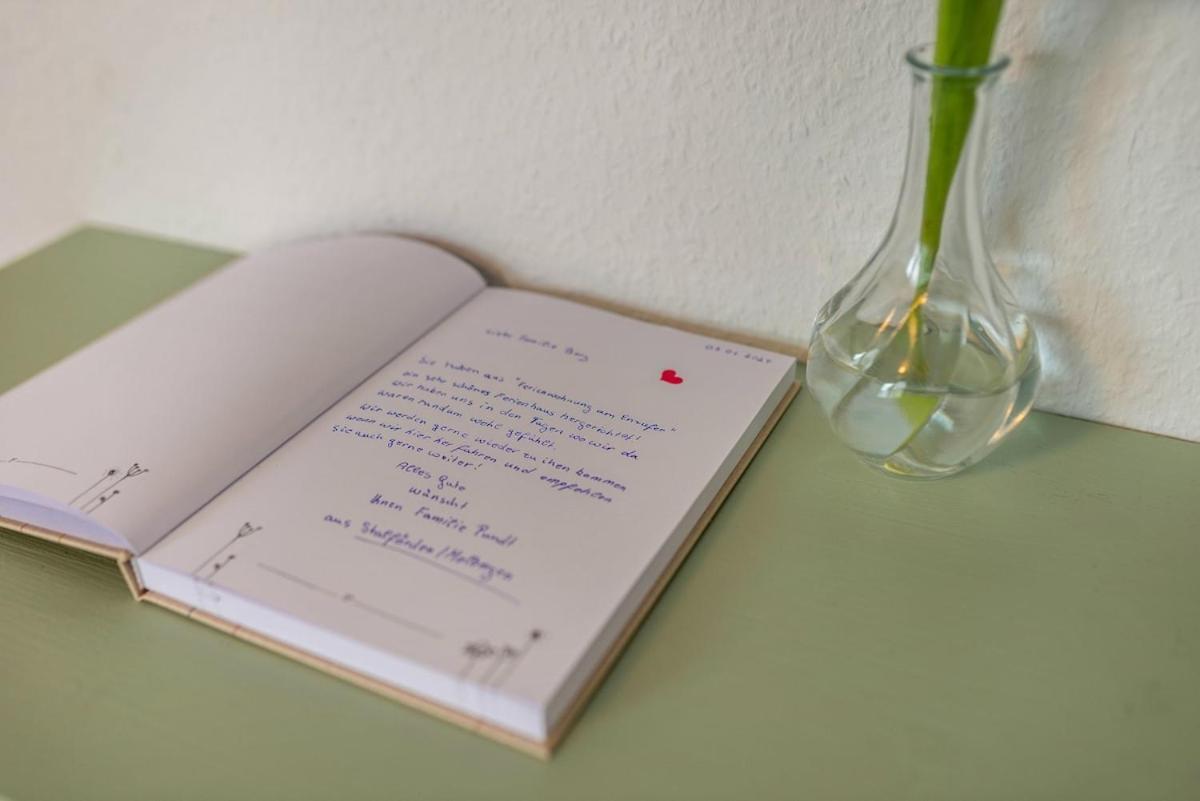 Liebe Familie Berg
Sie haben aus "Ferienwohnung am Emsufer"
ein sehr schönes Ferienhaus hergerichtet!
Wir haben uns in den Tagen wo wir da
waren rundum wohl gefühlt.
Wir werden gerne wieder zu ihen kommen
wenn wir hier her fahren und empfehlen
Sie auch gerne weiter!
Alles Gute
wünscht
Ihnen Familie Pundt
aus